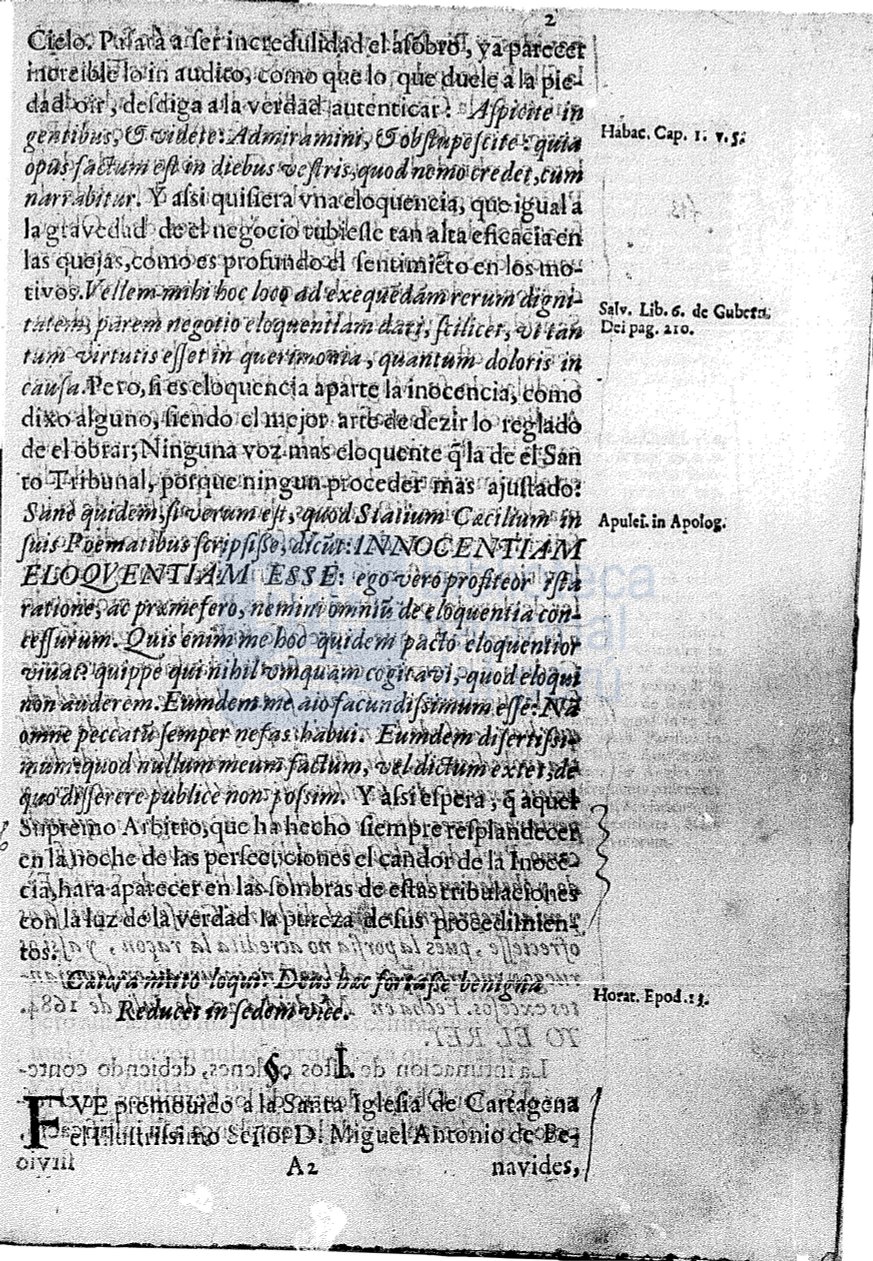 2
Cielo. Pasarà a ser incredulidad el asõbro, y a parecer
increible lo in audito, como que lo, que duele a la pie-
dad oir, desdiga a la verdad autenticar: Aspicite in
gentibus, & videte: Admiramini, & obstupescite: quia
opus factum est in diebus vestris, quod nemo credet, cùm
narrabitur. Y assi quisiera vna eloquencia, que igual a
la gravedad de el negocio tubiesse tan alta eficacia en
las quejas, como es profundo el sentimiẽto en los mo-
tivos. Vellem mihi hoc loco ad exequẽdam rerum digni-
tatem, parem negotio eloquentiam dari, scilicet, vt tan
tum virtutis esset in querimonia, quantum doloris in
causa. Pero, si es eloquencia aparte la inocencia, como
dixo alguno, siendo el mejor arte de dezir lo reglado
de el obrar; Ninguna voz mas eloquente q̃ la de el San
to Tribunal, porque ningun proceder mas ajustado:
Sanè quidem, si verum est, quod Statium Cæcilium in
suis Poëmatibus scripsisse, dicũt: INNOCENTIAM
ELOQVENTIAM ESSE: ego verò profiteor ista
ratione, ac præmefero, nemini omniũ de eloquentia con-
cessurum. Quis enim me hoc quidem pacto eloquentior
vivat? quippe qui nihil vnquam cogitavi, quod eloqui
non auderem. Eumdem me aio facundissimum esse: Nã
omne peccatũ semper nefas habui. Eumdem disertissi-
mum: quod nullum meum factum, vel dictum extet, de
quo disserere publicè non possim. Y assi espera, q̃ aquel
Supremo Arbitro, que ha hecho siempre resplandecer
en la noche de las persecuciones el candor de la Inocẽ-
cia, hara aparecer en las sombras de estas tribulaciones
con la luz de la verdad la pureza de sus procedimien-
tos.
Cætera mitto loqui: Deus hæc fortasse benigna
Reducet in sedem vice.
§. I.
FVE promouido a la Santa Iglesia de Cartagena
el Illustrissimo Señor D. Miguel Antonio de Be-
A2 navides,
Habac. Cap. 1. v. 5.
Salv. Lib. 6. de Gubern.
Dei pag. 210.
Apulei. in Apolog.
Horat. Epod. 13.
biblioteca